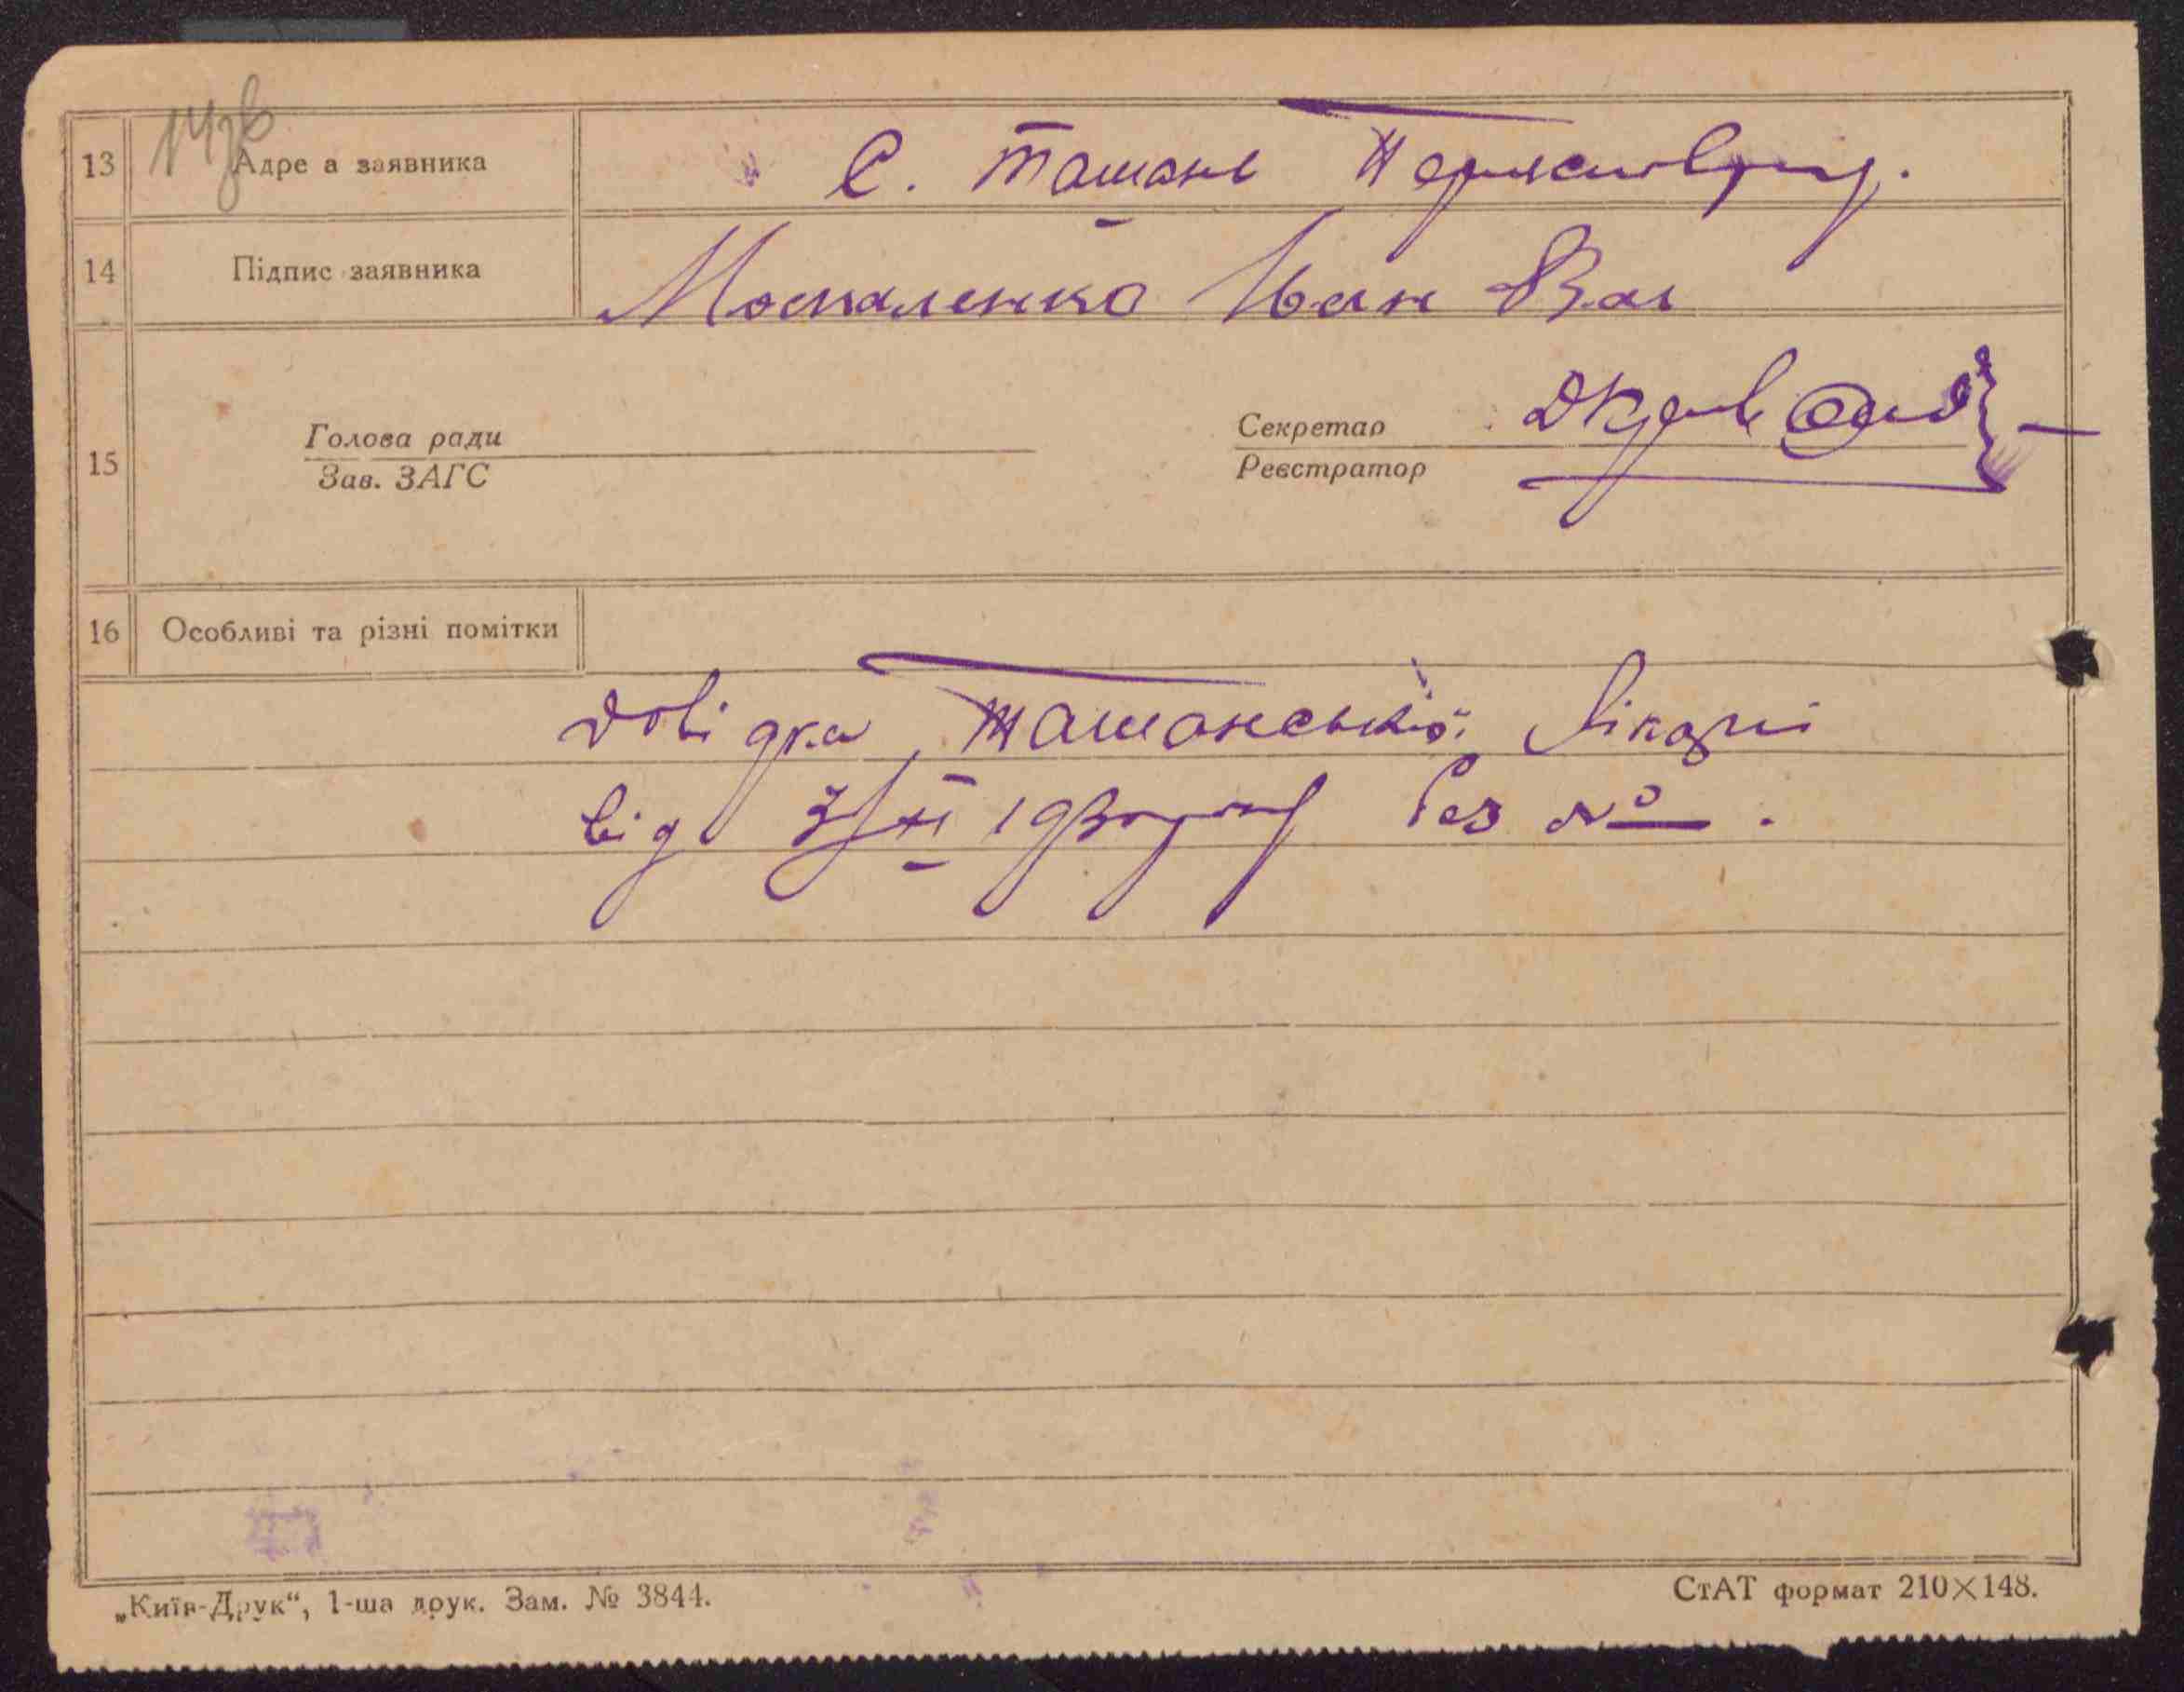 13 Адре а заявника С. Ташань
14 Підпис заявника Москаленко Іван Вас
15 Голова ради
Зав. ЗАГС
Секретар
Реєстратор
16 Особливі та різні помітки
Довідка Ташанської лікарні
від без №.
„Київ-Друк“, 1-ша друк. Зам. № 3844.
СтАТ формат 210×148.